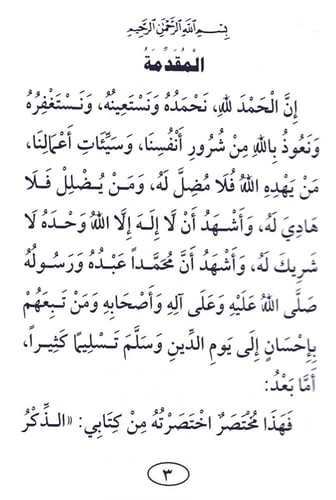 بِسْمِ اللَّهِ الرَّحْمَنِ الرَّحِيمِ
الْمُقَدِّمَةُ
إِنَّ الْحَمْدَ لِلَّهِ، نَحْمَدُهُ وَنَسْتَعِينُهُ، وَنَسْتَغْفِرُهُ
وَنَعُوذُ بِاللَّهِ مِنْ شُرُورِ أَنْفُسِنَا، وَسَيِّئَاتِ أَعْمَالِنَا،
مَنْ يَهْدِهِ اللَّهُ فَلَا مُضِلَّ لَهُ، وَمَنْ يُضْلِلْ فَلَا
هَادِيَ لَهُ، وَأَشْهَدُ أَنْ لَا إِلَهَ إِلَّا اللَّهُ وَحْدَهُ لَا
شَرِيكَ لَهُ، وَأَشْهَدُ أَنَّ مُحَمَّداً عَبْدُهُ وَرَسُولُهُ
صَلَّى اللَّهُ عَلَيْهِ وَعَلَى آلِهِ وَأَصْحَابِهِ وَمَنْ تَبِعَهُمْ
بِإِحْسَانٍ إِلَى يَوْمِ الدِّينِ وَسَلَّمَ تَسْلِيمًا كَثِيراً،
أَمَّا بَعْدُ:
فَهَذَا مُخْتَصَرٌ اخْتَصَرْتُهُ مِنْ كِتَابِي: «الذِّكْرُ
٣